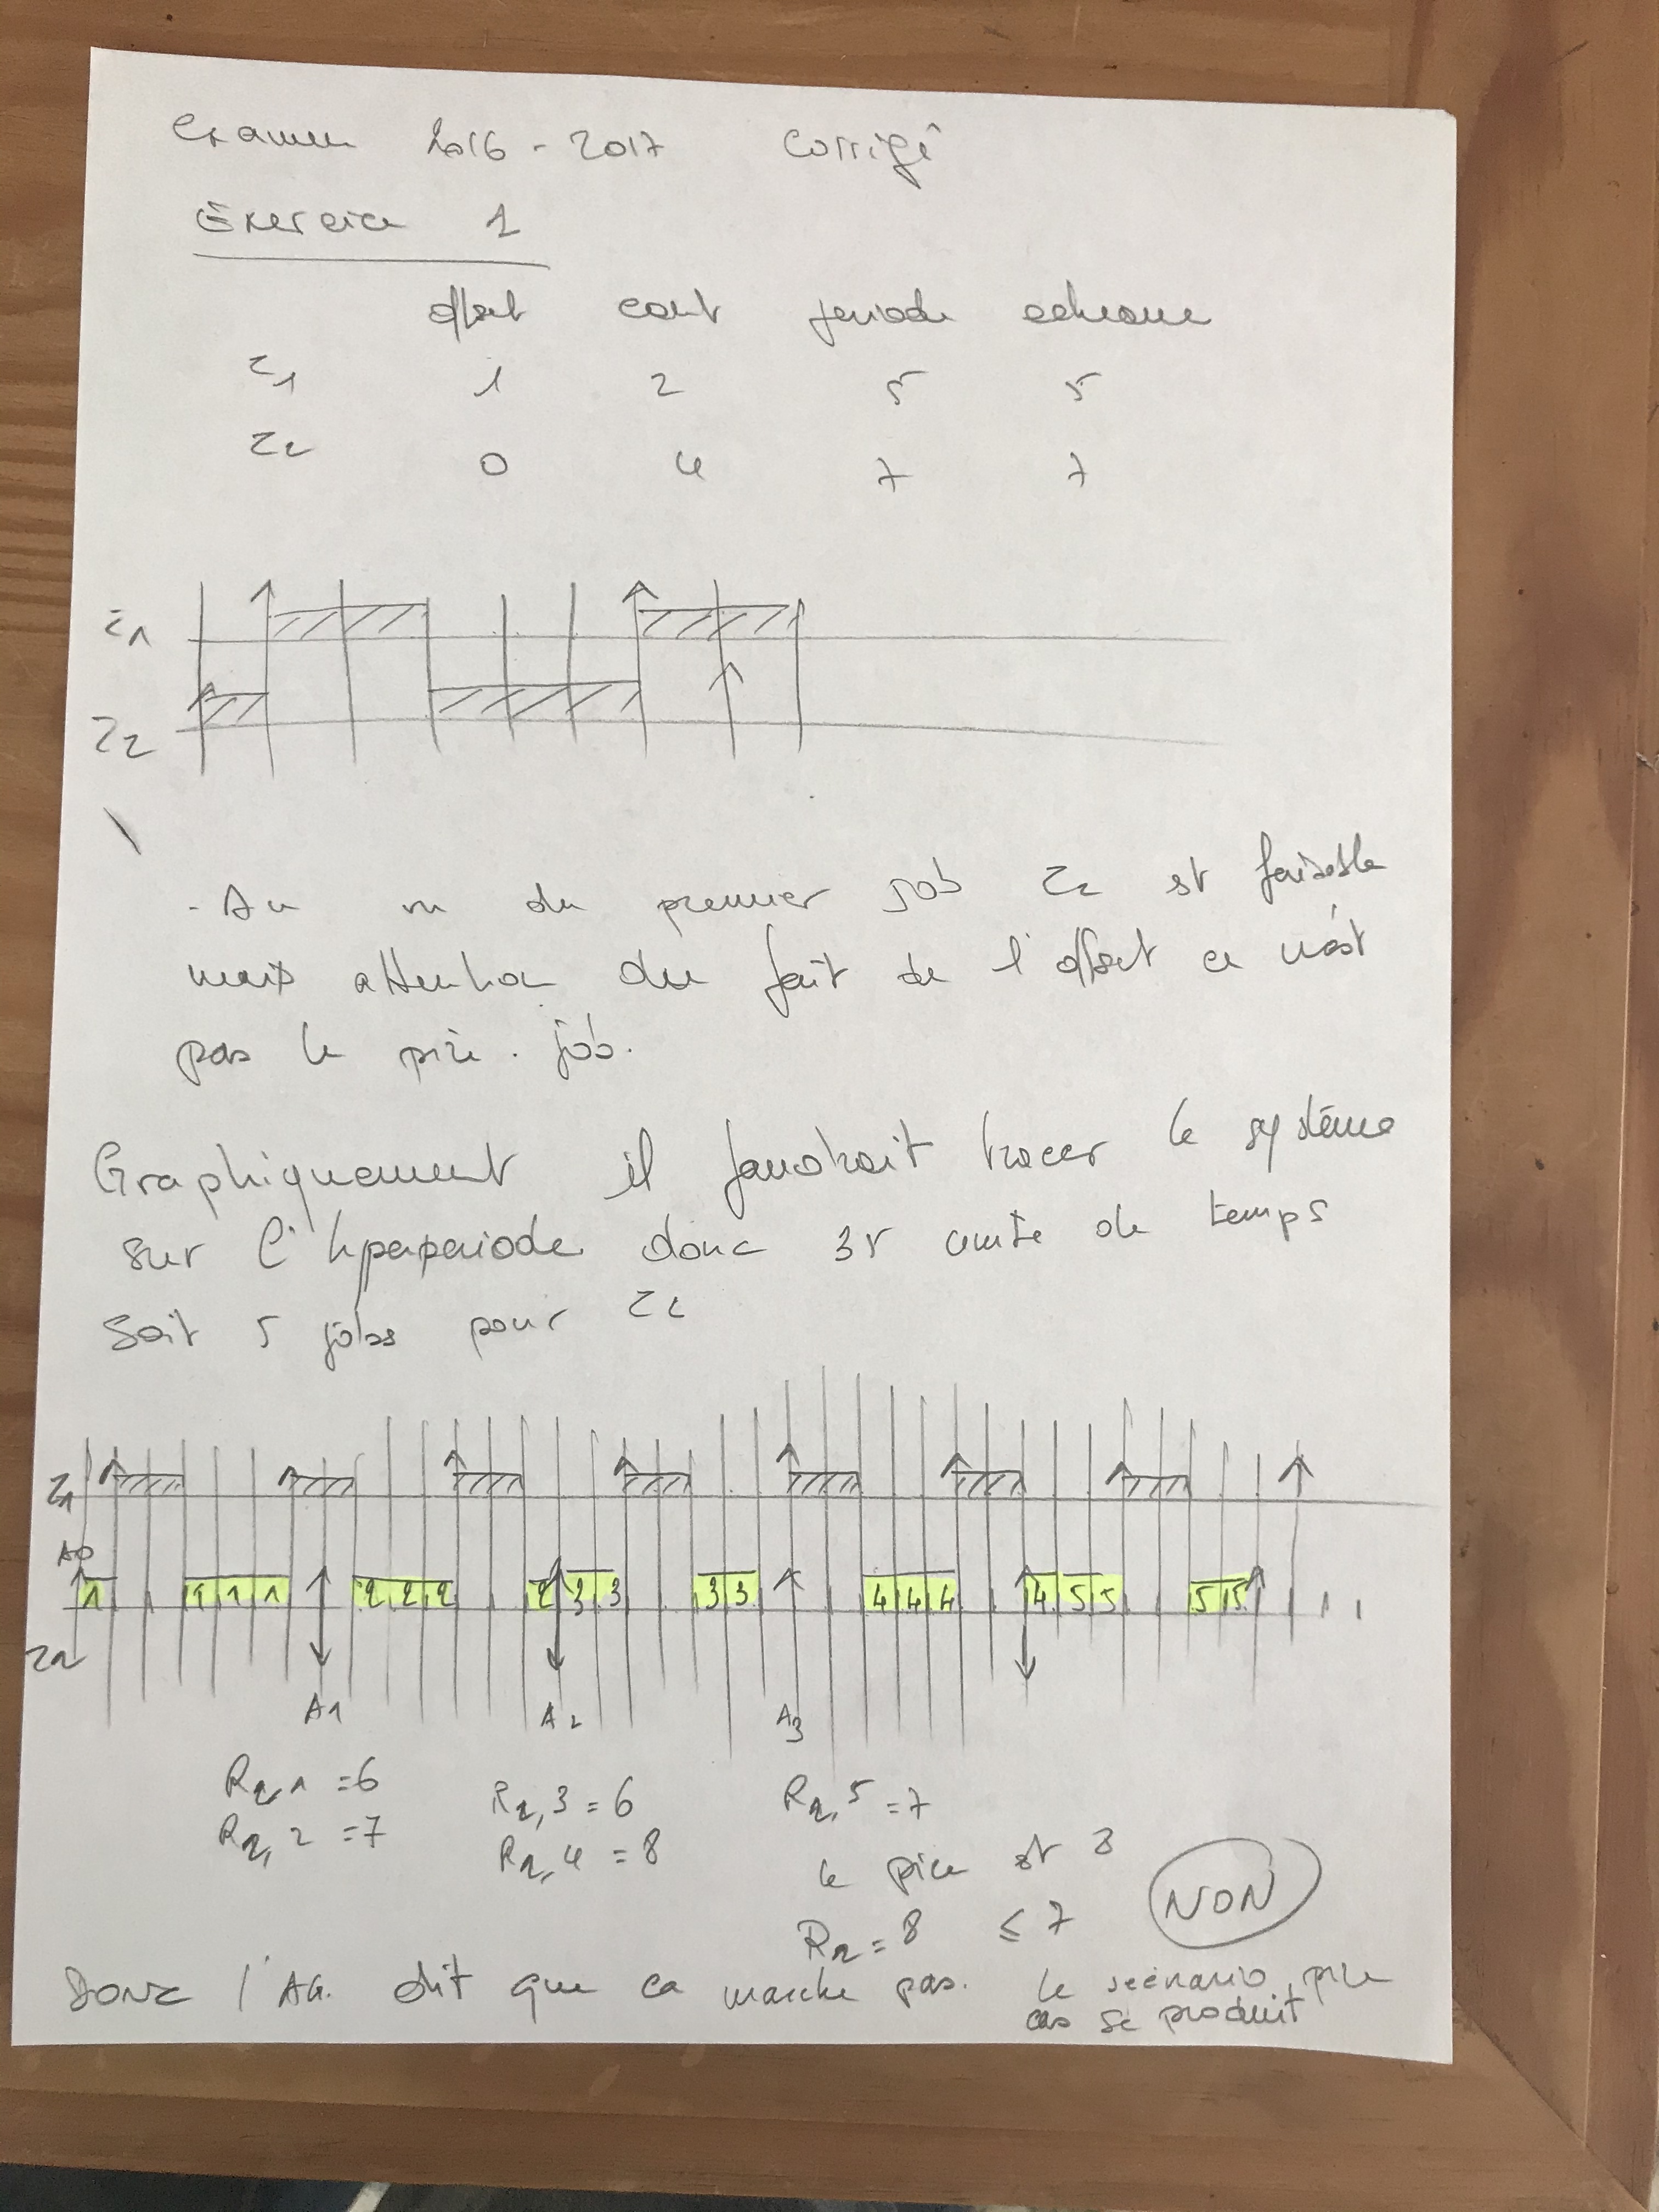 Examen 2016-2017 Corrigé
Exercice 1
offset cout periode echeance
τ1 1 2 5 5
τ2 0 4 7 7
τ1
τ2
- Au vu du premier job τ2 est faisable
mais attention du fait de l'offset ce n'est
pas le pire job.
Graphiquement il faudrait tracer le système
sur l'hperperiode donc 35 unité de temps
soit 5 jobs pour τ2
τ1
A0
1 1 1 1 2 2 2 2 3 3 3 3 4 4 4 4 5 5 5 5
τ2
A1 A2 A3
R2,1 = 6 R2,3 = 6 R2,5 = 7
R2,2 = 7 R2,4 = 8
le pire est 8
R2 = 8 ≤ 7 NON
Donc l'AG. dit que ca marche pas. le scénario pire
cas se produit